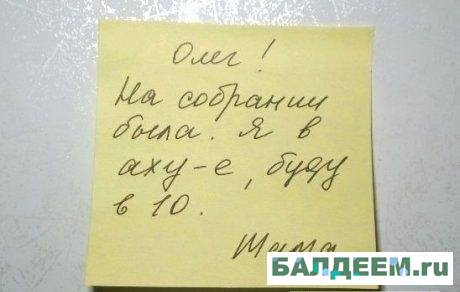 Олег!
На собрании
была. Я в
аху-е, буду
в 10.
Мама
БАЛДЕЕМ.ru